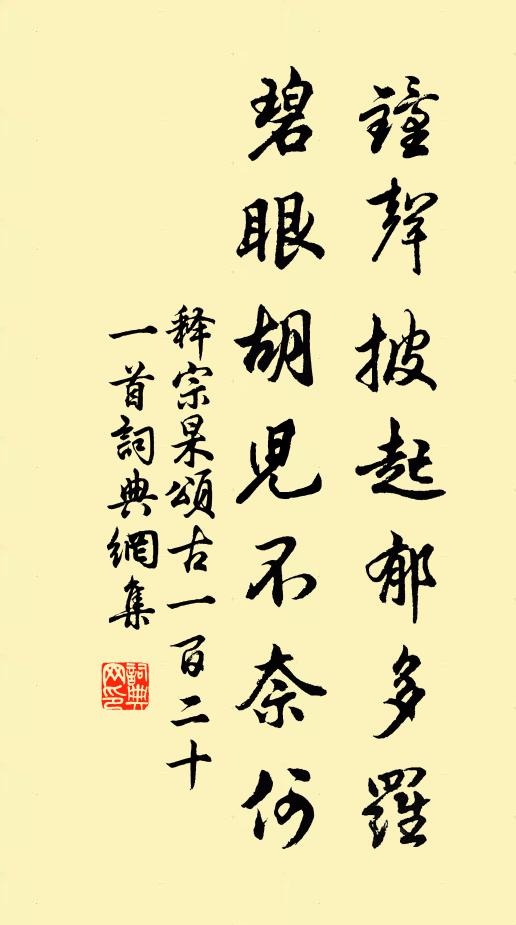 鐘聲披起郁多羅
碧眼胡兒不奈何
释宗杲頌古一百二十
一首詞典網集
詞典網印